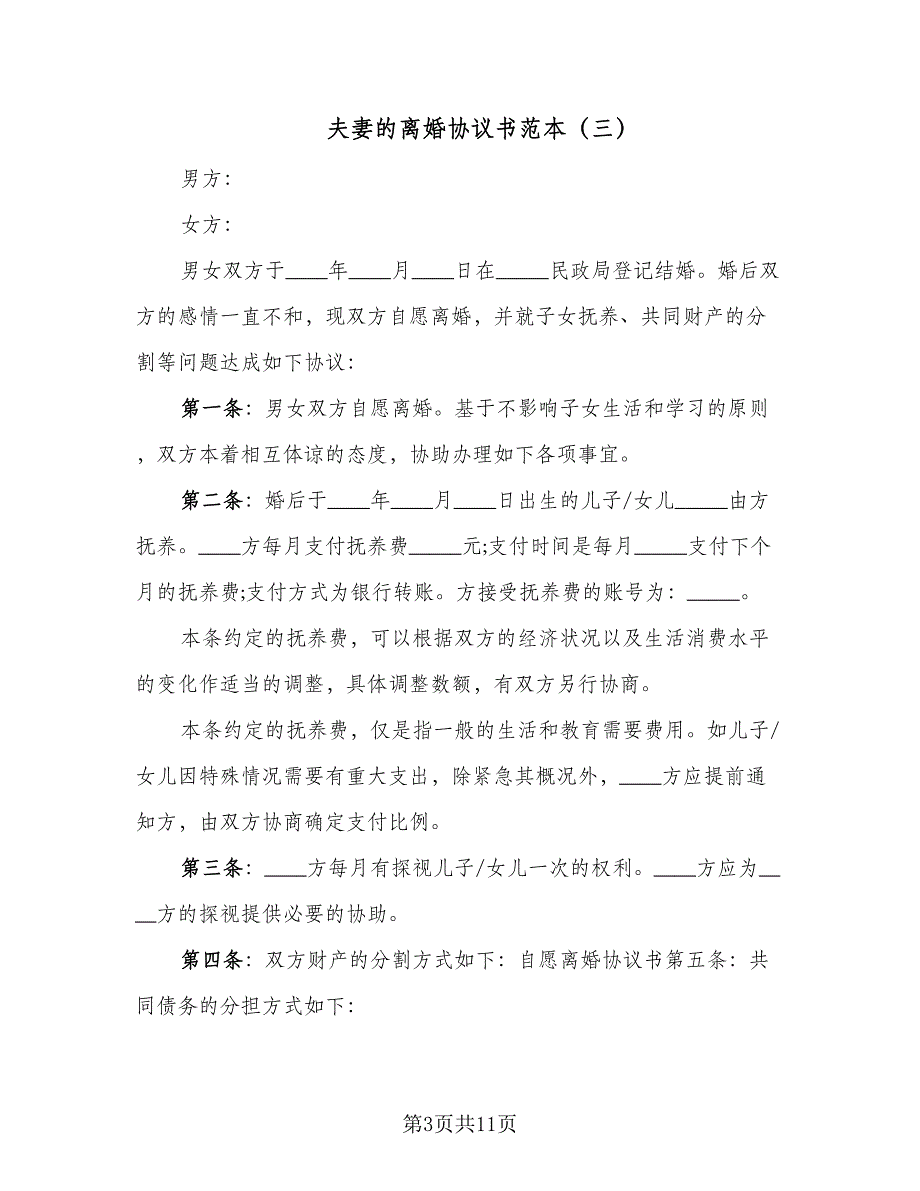 夫妻的离婚协议书范本（三）
男方：
女方：
男女双方于____年____月____日在_____民政局登记结婚。婚后双
方的感情一直不和，现双方自愿离婚，并就子女抚养、共同财产的分
割等问题达成如下协议：
第一条：男女双方自愿离婚。基于不影响子女生活和学习的原则
，双方本着相互体谅的态度，协助办理如下各项事宜。
第二条：婚后于____年____月____日出生的儿子/女儿_____由方
抚养。____方每月支付抚养费_____元;支付时间是每月_____支付下个
月的抚养费;支付方式为银行转账。方接受抚养费的账号为：_____。
本条约定的抚养费，可以根据双方的经济状况以及生活消费水平
的变化作适当的调整，具体调整数额，有双方另行协商。
本条约定的抚养费，仅是指一般的生活和教育需要费用。如儿子/
女儿因特殊情况需要有重大支出，除紧急其概况外，____方应提前通
知方，由双方协商确定支付比例。
第三条：____方每月有探视儿子/女儿一次的权利。____方应为__
__方的探视提供必要的协助。
第四条：双方财产的分割方式如下：自愿离婚协议书第五条：共
同债务的分担方式如下：
第3页共11页